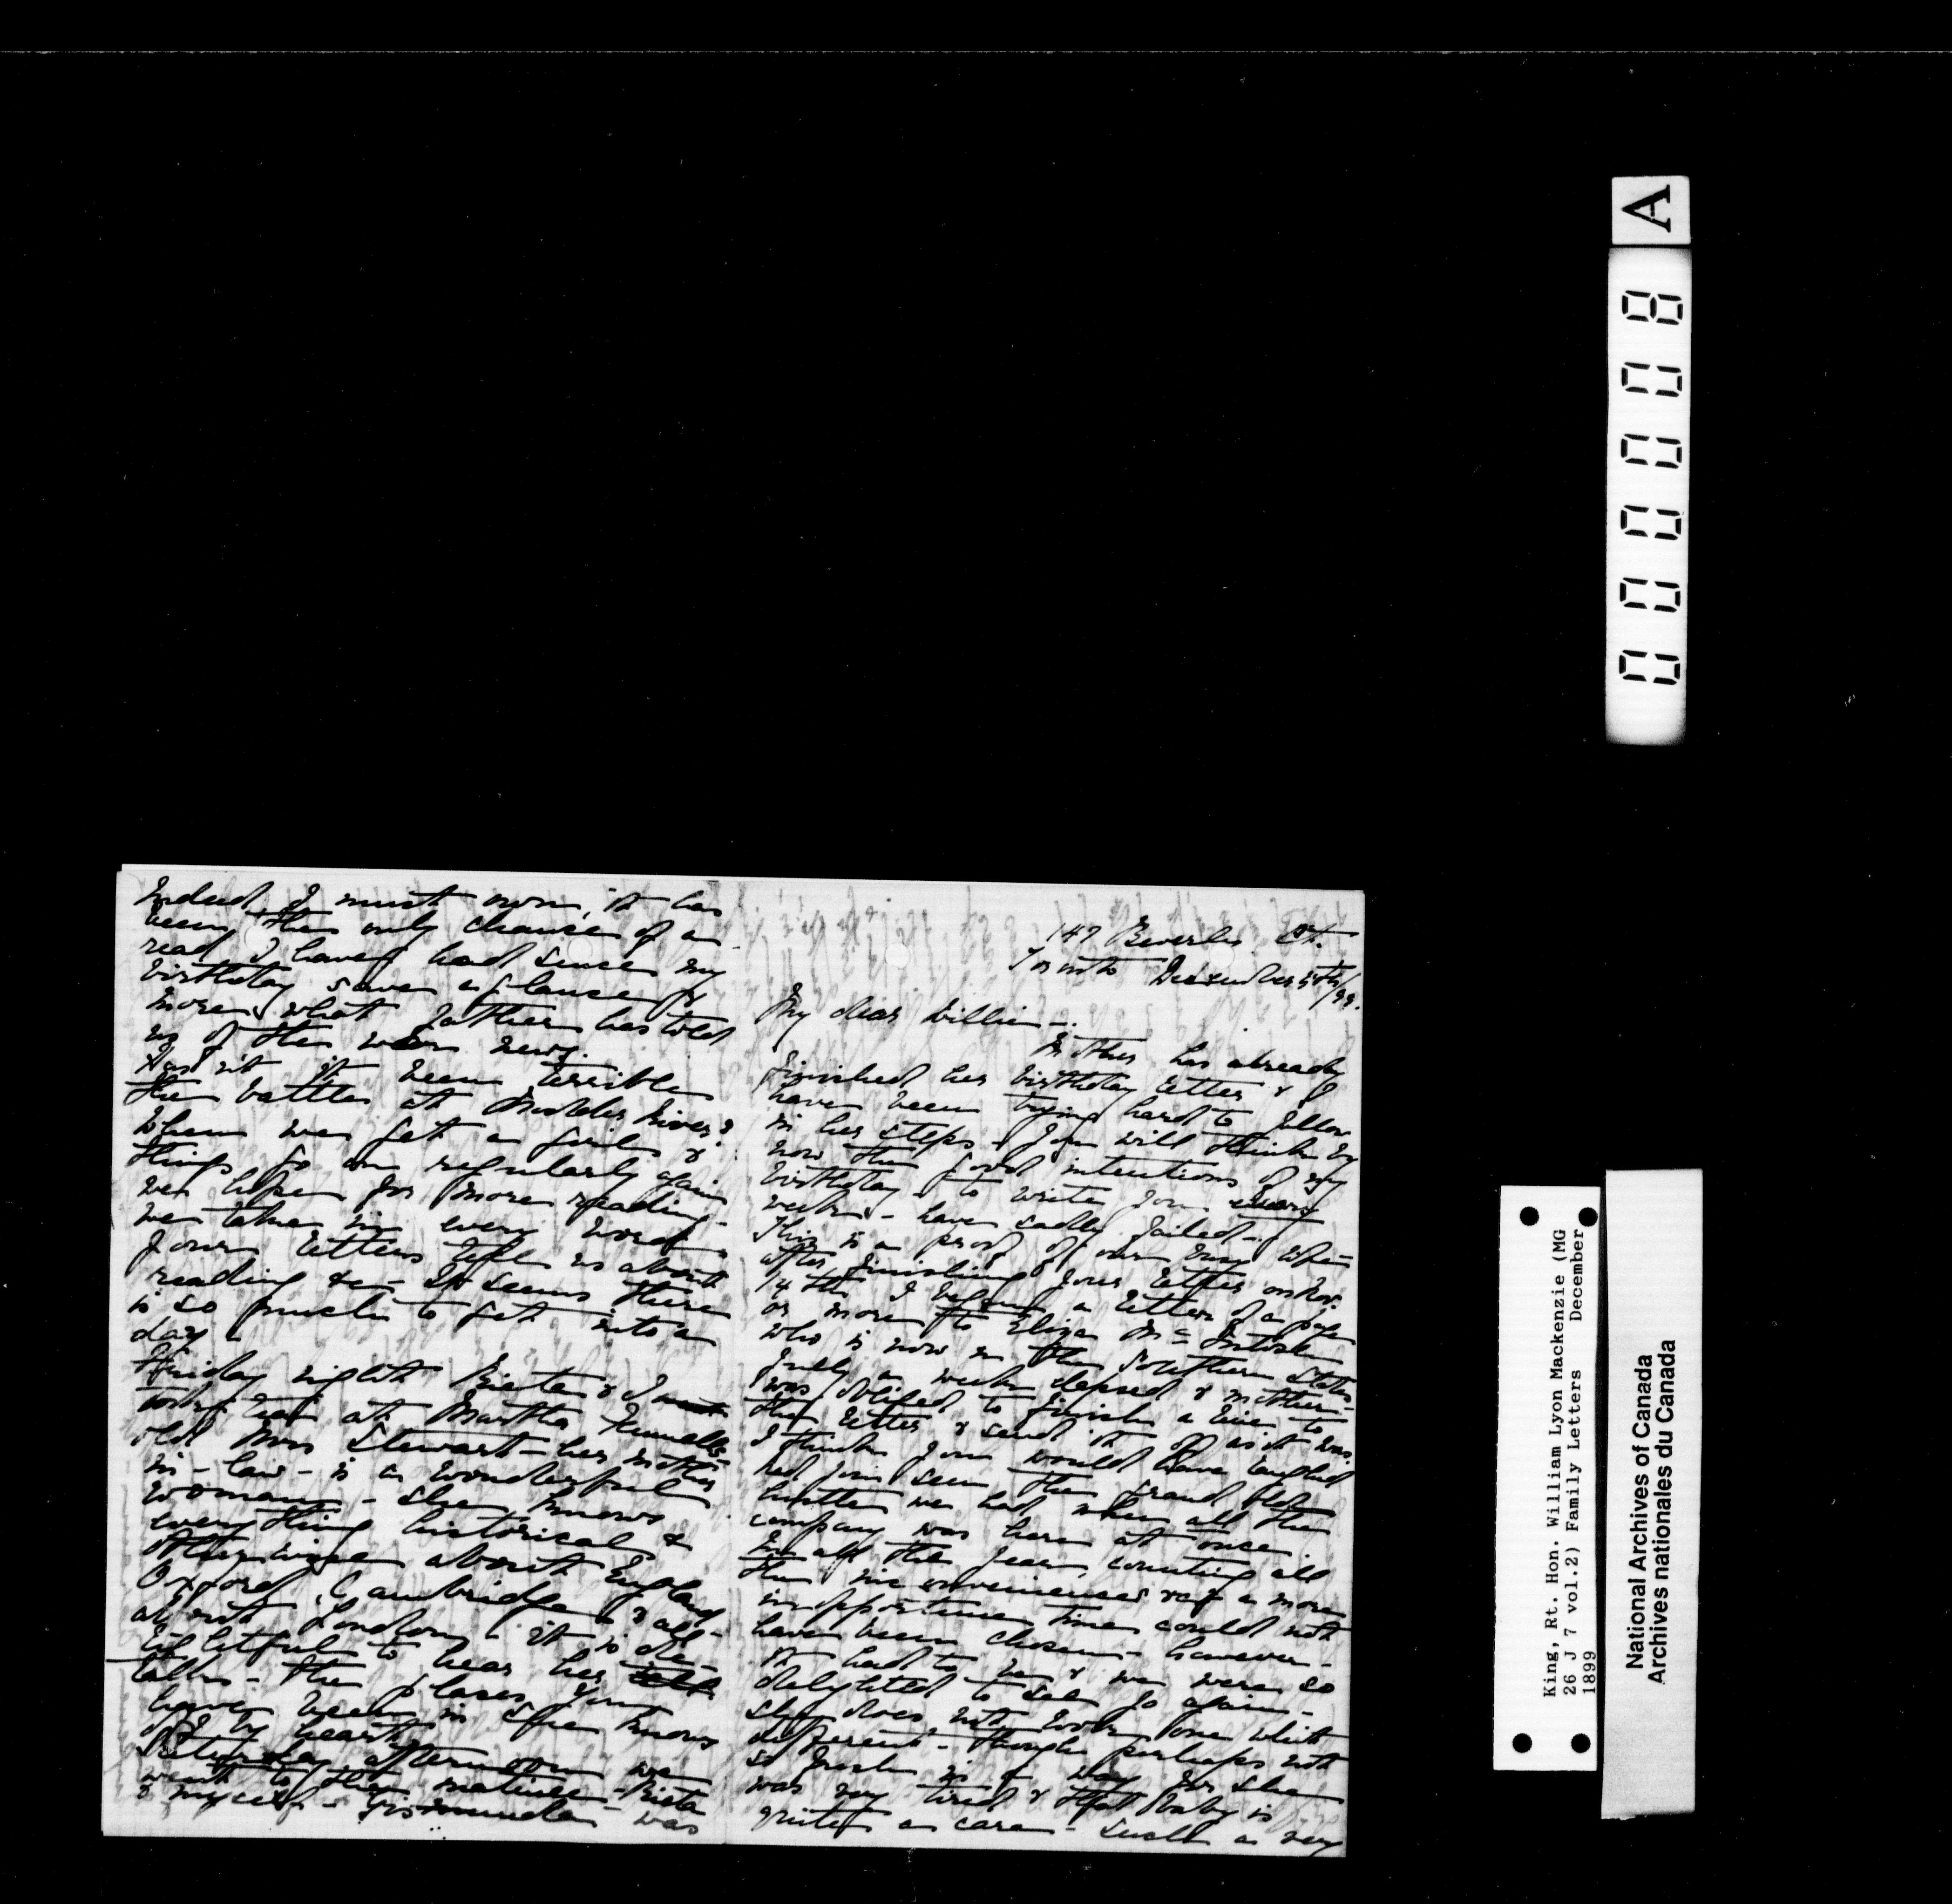 147 Beverley St.
Toronto December 5th/99.
My dear Willie -
Mother has already
finished her birthday letter & I
have been trying hard to follow
in her steps - You will think by
now the good intentions of my
birthday to write you every
week - have sadly failed -
This is a proof of our busy life -
after finishing your letter on Nov.
14th I began a letter of a page
or more to Eliza McIntosh
who is now in the Southern States
fully a week elapsed & mother
was obliged to finish a line to
the letter & send it off as it was.
I think you would have laughed
had you seen the grand old
hustle we had when all the
company was here at once
In all the year, counting all
the inconveniences a more
inopportune time could not
have been chosen - however -
it had to be & we were so
delighted to see Jo again -
she does not look one whit
different - though perhaps not
so fresh in a way for she
was very tired & that baby is
quite a care - such a very
Indeed I must own, it has
been the only chance of a
read I have had since my
birthday save a glance or
more & what father has told
us of the war news.
Has n't it been terrible
the battle at Modder River?
When we get a girl &
things go on regularly again
we hope for more reading -
we take in every word
your letters tell us about
reading &c - It seems there
is so much to get into a
day -
Friday night Bieta & I
took tea at Martha
old Mrs Stewart - her mother
in - law - is a wonderful
woman - she knows
everything historical &
otherwise about England
Oxford, Cambridge & all
about London - it is de-
lightful to hear her
talk - the places you
have been in she knows
off by heart
Saturday afternoon we
went to the matinee - Bieta
& myself - was
A
000008
King, Rt. Hon. William Lyon Mackenzie (MG
26 J 7 vol.2) Family Letters December
1899
National Archives of Canada
Archives nationales du Canada